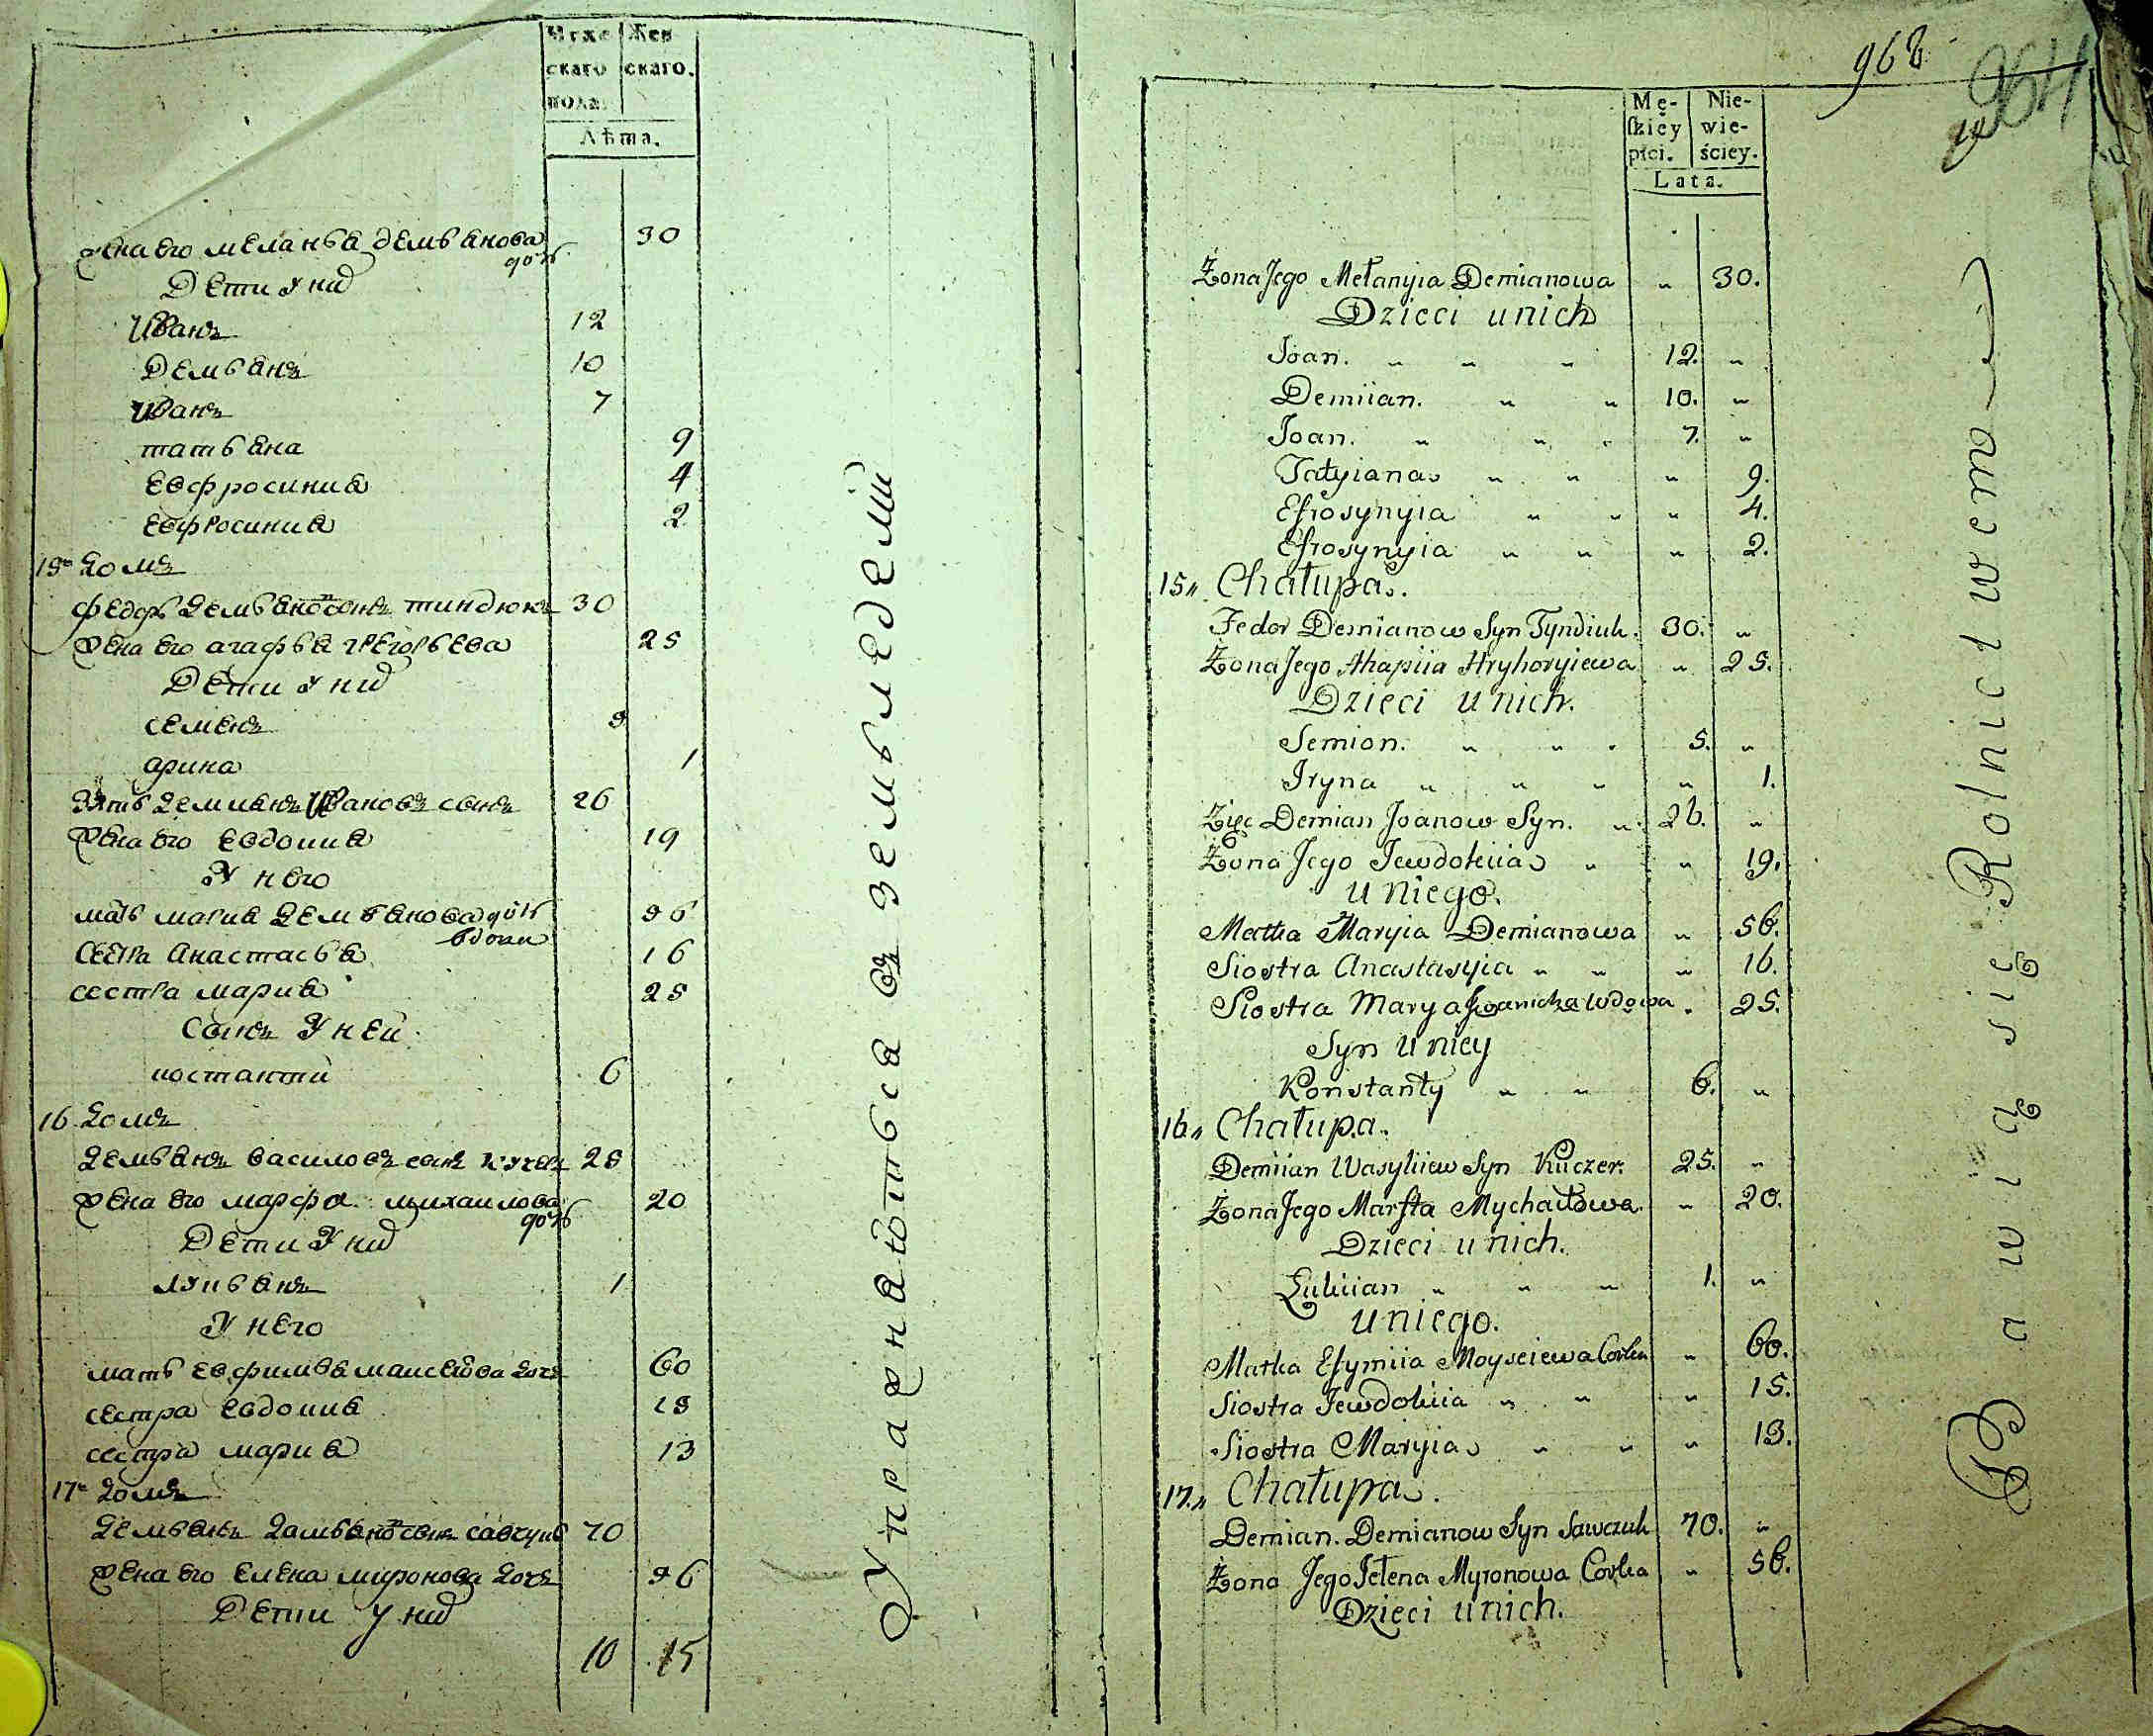 Мужескаго пола. Женскаго.
Лѣта.
жена его меланья демьянова дочь 30
Дети у них
Иванъ 12
Демьянъ 10
Иванъ 7
татьяна 9
евфросиния 4
евфросиния 2
15 домъ
федоръ демьяновъ сынъ тиндюкъ 30
жена его агафья григорьева 25
Дети у них
семенъ 5
арина 1
зять демиянъ Ивановъ сынъ 26
жена его евдокия 19
У него
мать мария демьянова дочь вдова 56
сестра анастасья 16
сестра мария 25
сынъ у ней
костантий 6
16 домъ
демьянъ василовъ сынъ кучеръ 25
жена его марфа михаилова дочь 20
Дети у них
лукьянъ 1
У него
мать евфимья маисеева дочь 60
сестра евдокия 15
сестра мария 13
17 домъ
демьянъ дамьяновъ сынъ савчукъ 70
жена его елена миронова дочь 56
Дети у них
10 15
Упражняютъся въ земъледелiй
968
964
Męſkiey płci. Niewieściey.
Lata.
Żona Jego Mełanyia Demianowa „ 30.
Dzieci u nich
Joan. „ „ „ 12. „
Demiian. „ „ 10. „
Joan. „ „ „ 7. „
Tatyiana „ „ „ 9.
Efrosynyia „ „ „ 4.
Efrosynyia „ „ „ 2.
15„ Chałupa.
Fedor Demianow Syn Tyndiuk. 30. „
Żona Jego Ahapiia Hryhoryiewa „ 25.
Dzieci u nich.
Semion. „ „ „ 5. „
Iryna „ „ „ „ 1.
Zięc Demian Joanow Syn. „ 26. „
Żona Jego Jewdokiia „ „ 19.
u niego.
Matka Maryia Demianowa „ 56.
Siostra Anastasyia „ „ „ 16.
Siostra Marya Iwanicka wdowa „ 25.
Syn u niey
Konstanty „ „ 6. „
16„ Chałupa.
Demiian Wasyliiew Syn Kuczer. 25. „
Żona Jego Marfta Mychaiłowa. „ 20.
Dzieci u nich.
Łukiian „ „ „ 1. „
u niego.
Matka Efymiia Moysciewa Corka „ 60.
Siostra Jewdokiia „ „ „ 15.
Siostra Maryia „ „ „ 13.
17„ Chałupa.
Demian. Demianow Syn Sawczuk 70. „
Żona Jego Jełena Myronowa Corka „ 56.
Dzieci u nich.
Bawią się Rolnictwem